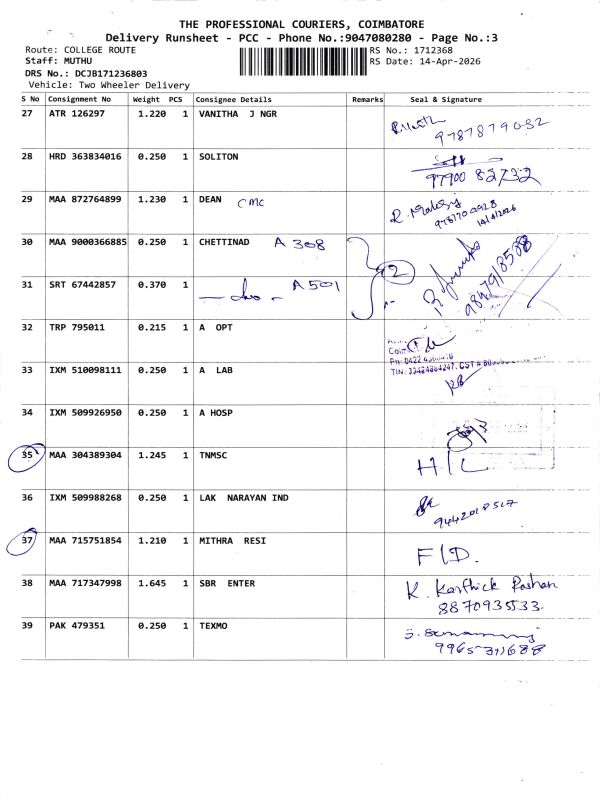 THE PROFESSIONAL COURIERS, COIMBATORE
Delivery Runsheet - PCC - Phone No.:9047080280 - Page No.:3
Route: COLLEGE ROUTE RS No.: 1712368
Staff: MUTHU RS Date: 14-Apr-2026
DRS No.: DCJB171236803
Vehicle: Two Wheeler Delivery
S No Consignment No Weight PCS Consignee Details Remarks Seal & Signature
27 ATR 126297 1.220 1 VANITHA J NGR
9787879052
28 HRD 363834016 0.250 1 SOLITON
97900 82732
29 MAA 872764899 1.230 1 DEAN CMC
14/4/2026
30 MAA 9000366885 0.250 1 CHETTINAD A 308
2
31 SRT 67442857 0.370 1 — do — A 501
32 TRP 795011 0.215 1 A OPT
33 IXM 510098111 0.250 1 A LAB
34 IXM 509926950 0.250 1 A HOSP
35 MAA 304389304 1.245 1 TNMSC H/C
36 IXM 509988268 0.250 1 LAK NARAYAN IND
37 MAA 715751854 1.210 1 MITHRA RESI F/D.
38 MAA 717347998 1.645 1 SBR ENTER K. Karthick Roshan
8870935533
39 PAK 479351 0.250 1 TEXMO
9965311688